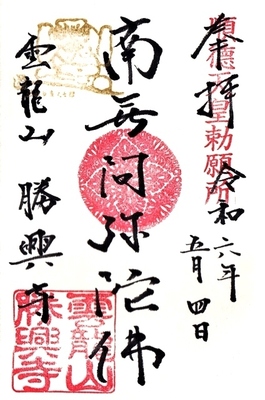 順徳天皇勅願所
奉拝
令和六年
五月四日
南無阿弥陀佛
雲龍山 勝興寺
雲龍山
勝興寺